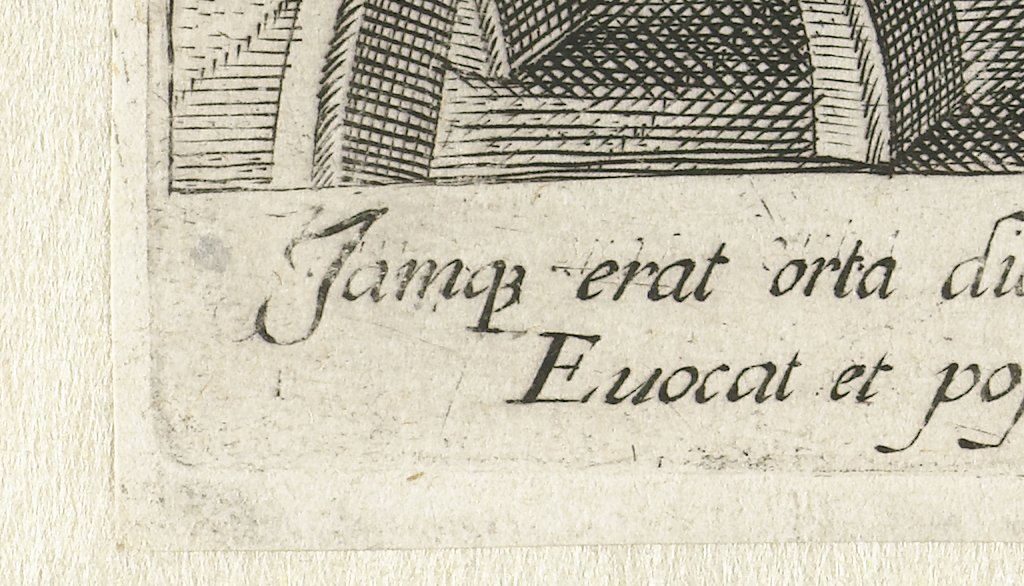 Jamqꝫ erat orta di
Euocat et po